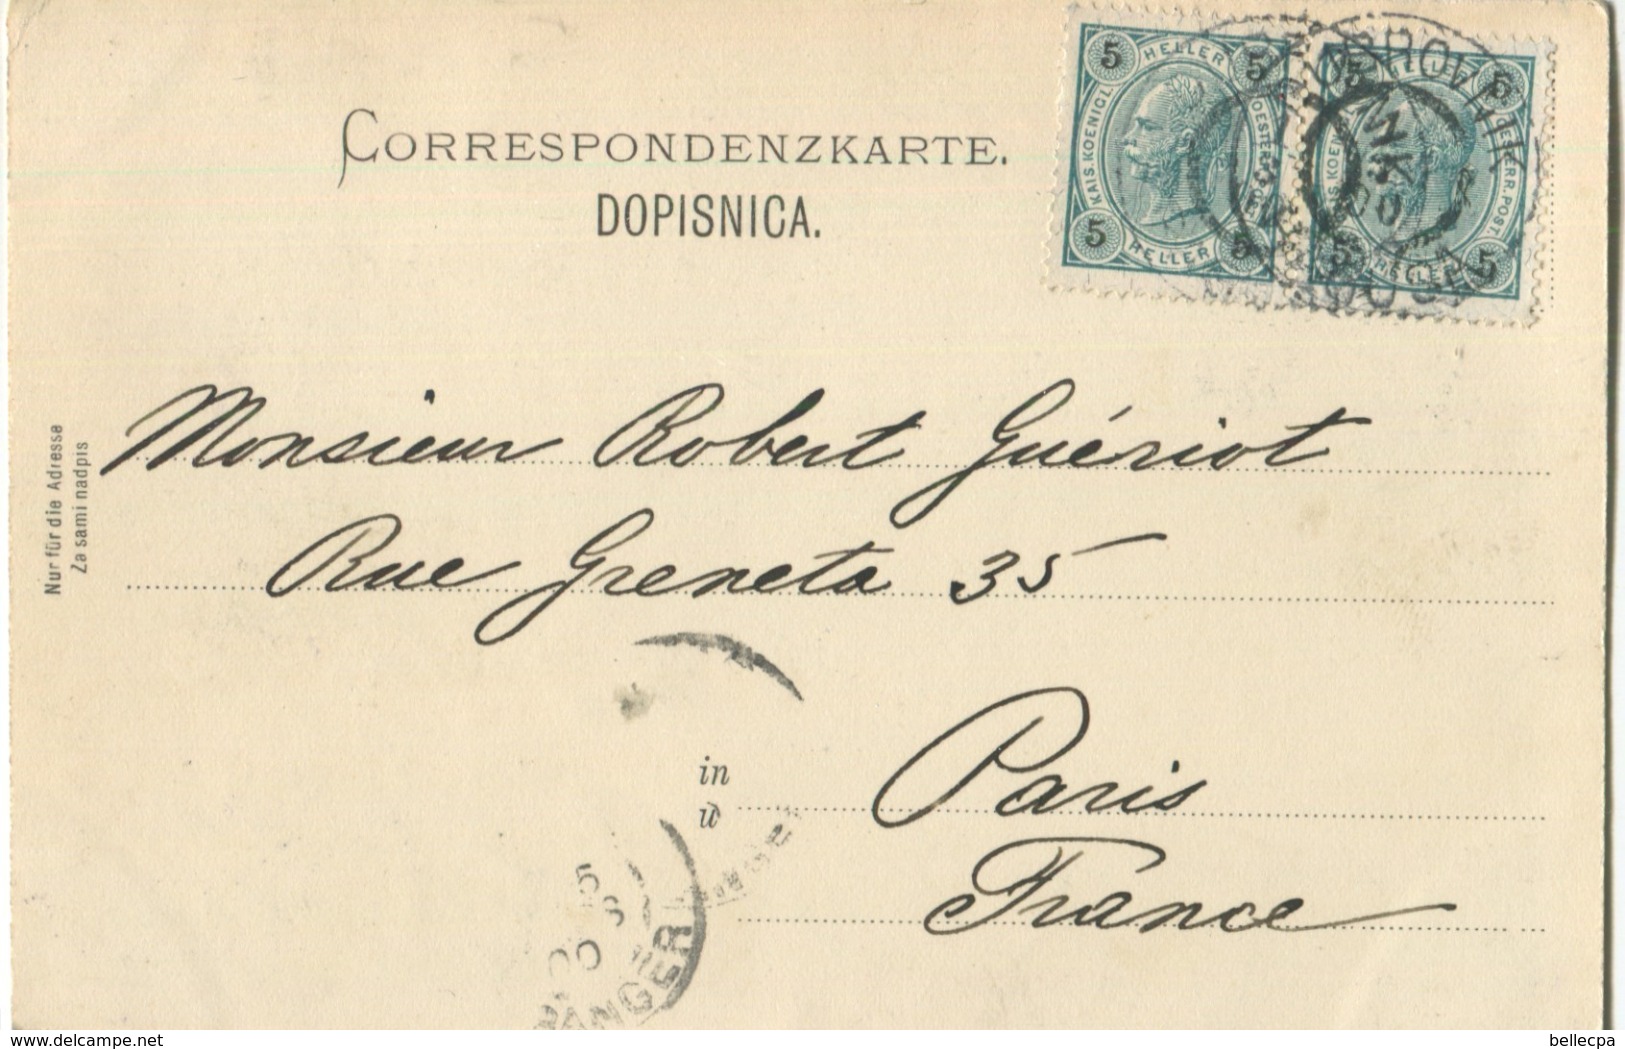 CORRESPONDENZKARTE.
DOPISNICA.
5 HELLER 5
KAIS. KOENIGL. OESTERR. POST.
5 HELLER 5
5 HELLER 5
KAIS. KOENIGL. OESTERR. POST.
5 HELLER 5
Nur für die Adresse
Za sami nadpis
Monsieur Robert Guériot
Rue Greneta 35
in
u
Paris
France
5
00
ANGER
delcampe.net
bellecpa